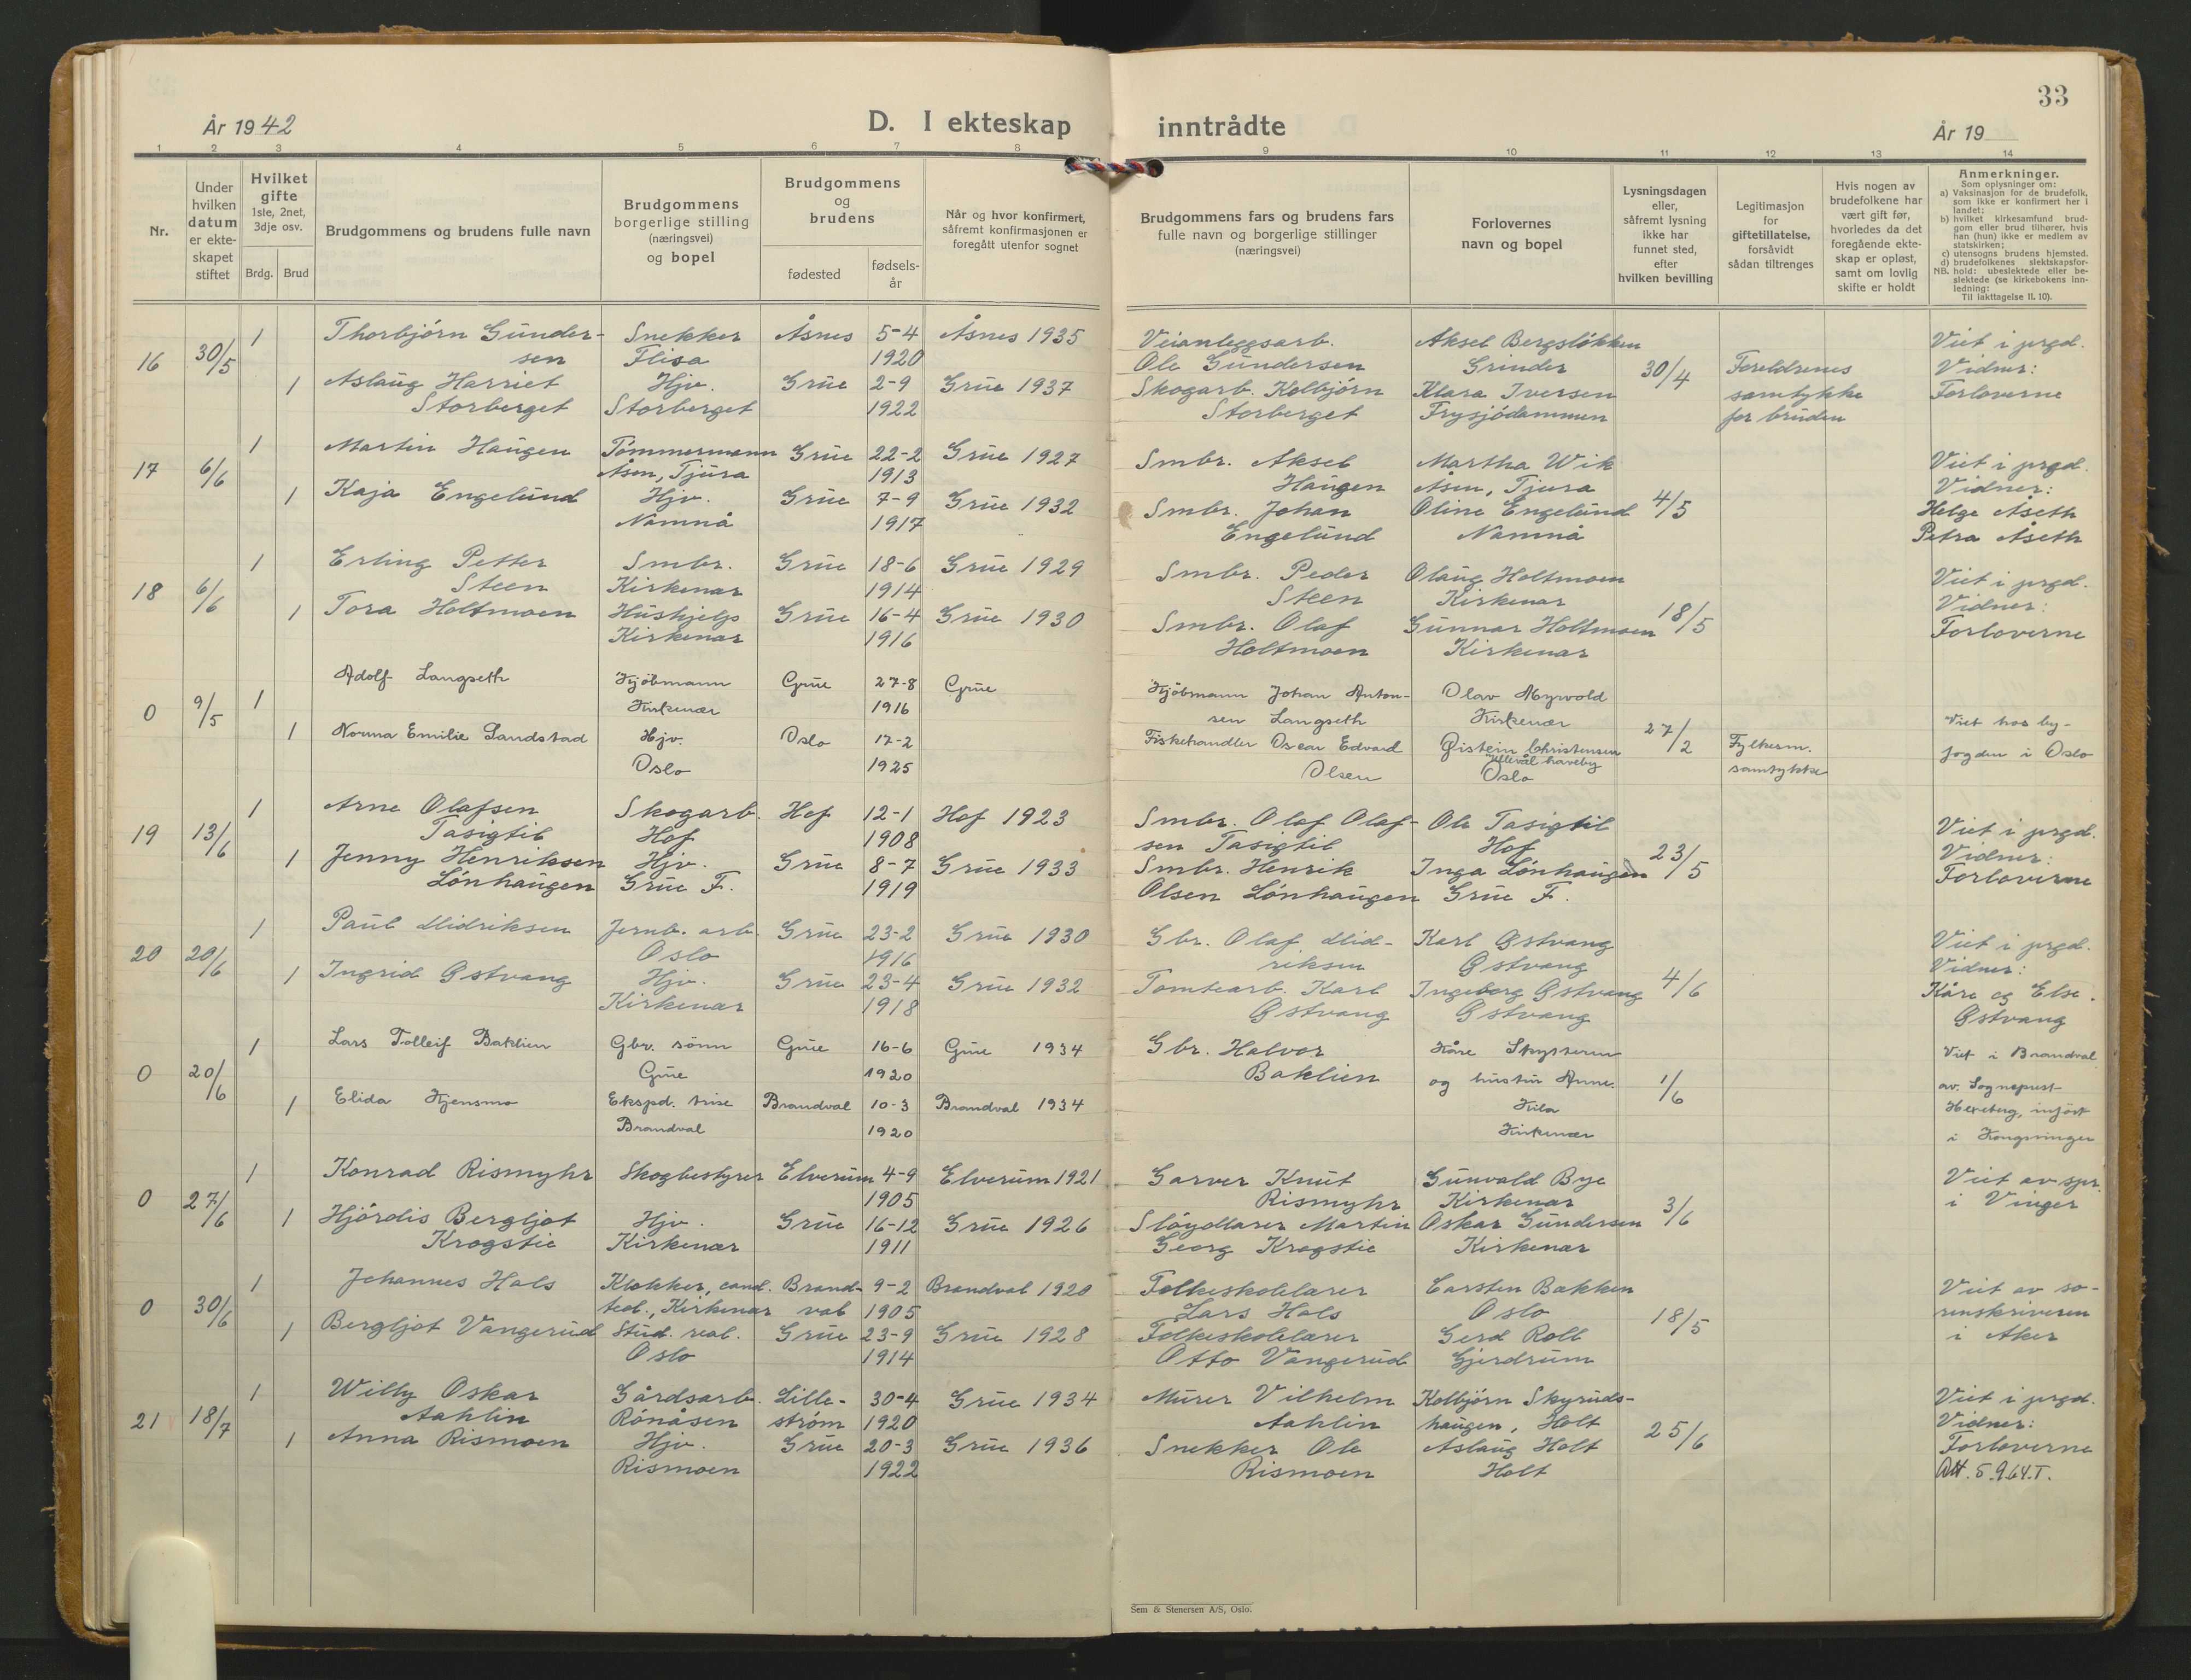 33
År 1942
D. I ekteskap inntrådte
År 19
1 2 3 4 5 6 7 8 9 10 11 12 13 14
Nr.
Under hvilken datum er ekteskapet stiftet
Hvilket gifte 1ste, 2net, 3dje osv.
Brdg. Brud
Brudgommens og brudens fulle navn
Brudgommens borgerlige stilling (næringsvei) og bopel
Brudgommens og brudens
fødested
fødselsår
Når og hvor konfirmert, såfremt konfirmasjonen er foregått utenfor sognet
Brudgommens fars og brudens fars fulle navn og borgerlige stillinger (næringsvei)
Forlovernes navn og bopel
Lysningsdagen eller, såfremt lysning ikke har funnet sted, efter hvilken bevilling
Legitimasjon for giftetillatelse, forsåvidt sådan tiltrenges
Hvis nogen av brudefolkene har vært gift før, hvorledes da det foregående ekteskap er opløst, samt om lovlig skifte er holdt
Anmerkninger.
Som oplysninger om:
a) Vaksinasjon for de brudefolk, som ikke er konfirmert her i landet;
b) hvilket kirkesamfund brudgom eller brud tilhører, hvis han (hun) ikke er medlem av statskirken;
c) utensogns brudens hjemsted.
d) brudefolkenes slektskapsforhold: ubeslektede eller beslektede (se kirkebokens innledning:
NB.
Til iakttagelse II. 10).
16 30/5 1 Thorbjörn Gunder- Snekker Åsnes 5-4 Åsnes 1935 Veianleggsarb. Aksel Bergslökken Viet i prgd.
sen Flisa 1920 Ole Gundersen Grinder 30/4 Foreldrenes Vidner:
1 Aslaug Harriet Hjv. Grue 2-9 Grue 1937 Skogarb. Kolbjörn Klara Iversen samtykke Forloverne
Storberget Storberget 1922 Storberget Frysjödammen for bruden
17 6/6 1 Martin Haugen Tömmermann Grue 22-2 Grue 1927 Smbr. Aksel Martha Wik Viet i prgd.
Åsen, Tjura 1913 Haugen Åsen, Tjura Vidner:
1 Kaja Engelund Hjv. Grue 7-9 Grue 1932 Smbr. Johan Oline Engelund 4/5 Helge Åseth
Namnå 1917 Engelund Namnå Petra Åseth
18 6/6 1 Erling Petter Smbr. Grue 18-6 Grue 1929 Smbr. Peder Olaug Holtmoen Viet i prgd.
Steen Kirkenær 1914 Steen Kirkenær Vidner:
1 Tora Holtmoen Hushjelp Grue 16-4 Grue 1930 Smbr. Olaf Gunnar Holtmoen 18/5 Forloverne
Kirkenær 1916 Holtmoen Kirkenær
0 9/5 1 Adolf Langseth Kjöbmann Grue 27-8 Grue Kjöbmann Johan Anton- Olav Myrvold
Kirkenær 1916 sen Langseth Kirkenær Viet hos by-
1 Norma Emilie Sandstad Hjv. Oslo 17-2 Fiskehandler Oscar Edvard Øistein Christensen 27/2 Fylkesm. fogden i Oslo
Oslo 1925 Olsen Ullevål haveby samtykke
Oslo
19 13/6 1 Arne Olafsen Skogarb. Hof 12-1 Hof 1923 Smbr. Olaf Olaf- Ole Tasigtil Viet i prgd.
Tasigtil Hof 1908 sen Tasigtil Hof Vidner:
1 Jenny Henriksen Hjv. Grue 8-7 Grue 1933 Smbr. Henrik Inga Lönhaugen 23/5 Forloverne
Lönhaugen Grue F. 1919 Olsen Lönhaugen Grue F.
20 20/6 1 Paul Midriksen Jernb. arb. Grue 23-2 Grue 1930 Gbr. Olaf Mid- Karl Østvang Viet i prgd.
Oslo 1916 riksen Østvang Vidner:
1 Ingrid Østvang Hjv. Grue 23-4 Grue 1932 Tomtearb. Karl Ingeborg Østvang 4/6 Kåre og Else
Kirkenær 1918 Østvang Østvang Østvang
0 20/6 1 Lars Tolleif Baklien Gbr. sønn Grue 16-6 Grue 1934 Gbr. Halvor Kåre Skysteren Viet i Brandval
Grue 1920 Baklien og hustru Anne. 1/6 av Sogneprest
1 Elida Kjensmo Ekspd. trise Brandval 10-3 Brandval 1934 Kila Hexeberg, infört
Brandval 1920 Kirkenær i Kongsvinger
0 27/6 1 Konrad Rismyhr Skogbestyrer Elverum 4-9 Elverum 1921 Garver Knut Gunvald Bye Viet av spr.
1905 Rismyhr Kirkenær i Vinger
1 Hjördis Bergljot Hjv. Grue 16-12 Grue 1926 Slöydlærer Martin Oskar Gundersen 3/6
Krogstie Kirkenær 1911 Georg Krogstie Kirkenær
0 30/6 1 Johannes Hals Klokker, cand. Brand- 9-2 Brandval 1920 Folkeskolelærer Carsten Bakken Viet av so-
teol., Kirkenær val 1905 Lars Hals Oslo renskriveren
1 Bergljot Vangerud Stud. real. Grue 23-9 Grue 1928 Folkeskolelærer Gerd Roll 18/5 i Aker
Oslo 1914 Otto Vangerud Gjerdrum
21 18/7 1 Willy Oskar Gårdsarb. Lille- 30-4 Grue 1934 Murer Vilhelm Kolbjörn Skyruds- Viet i prgd.
Aahlin Rönåsen ström 1920 Aahlin haugen, Holt Vidner:
1 Anna Rismoen Hjv. Grue 20-3 Grue 1936 Snekker Ole Aslaug Holt 25/6 Forloverne
Rismoen 1922 Rismoen Holt Att. 5.9.64.T.
Sem & Stenersen A/S, Oslo.